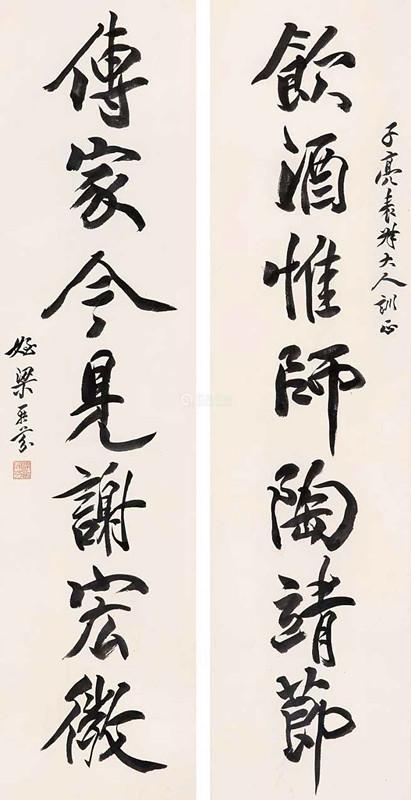 子亮表叔大人訓正
飲酒惟師陶靖節
傳家今見謝宏微
姪梁鼎芬